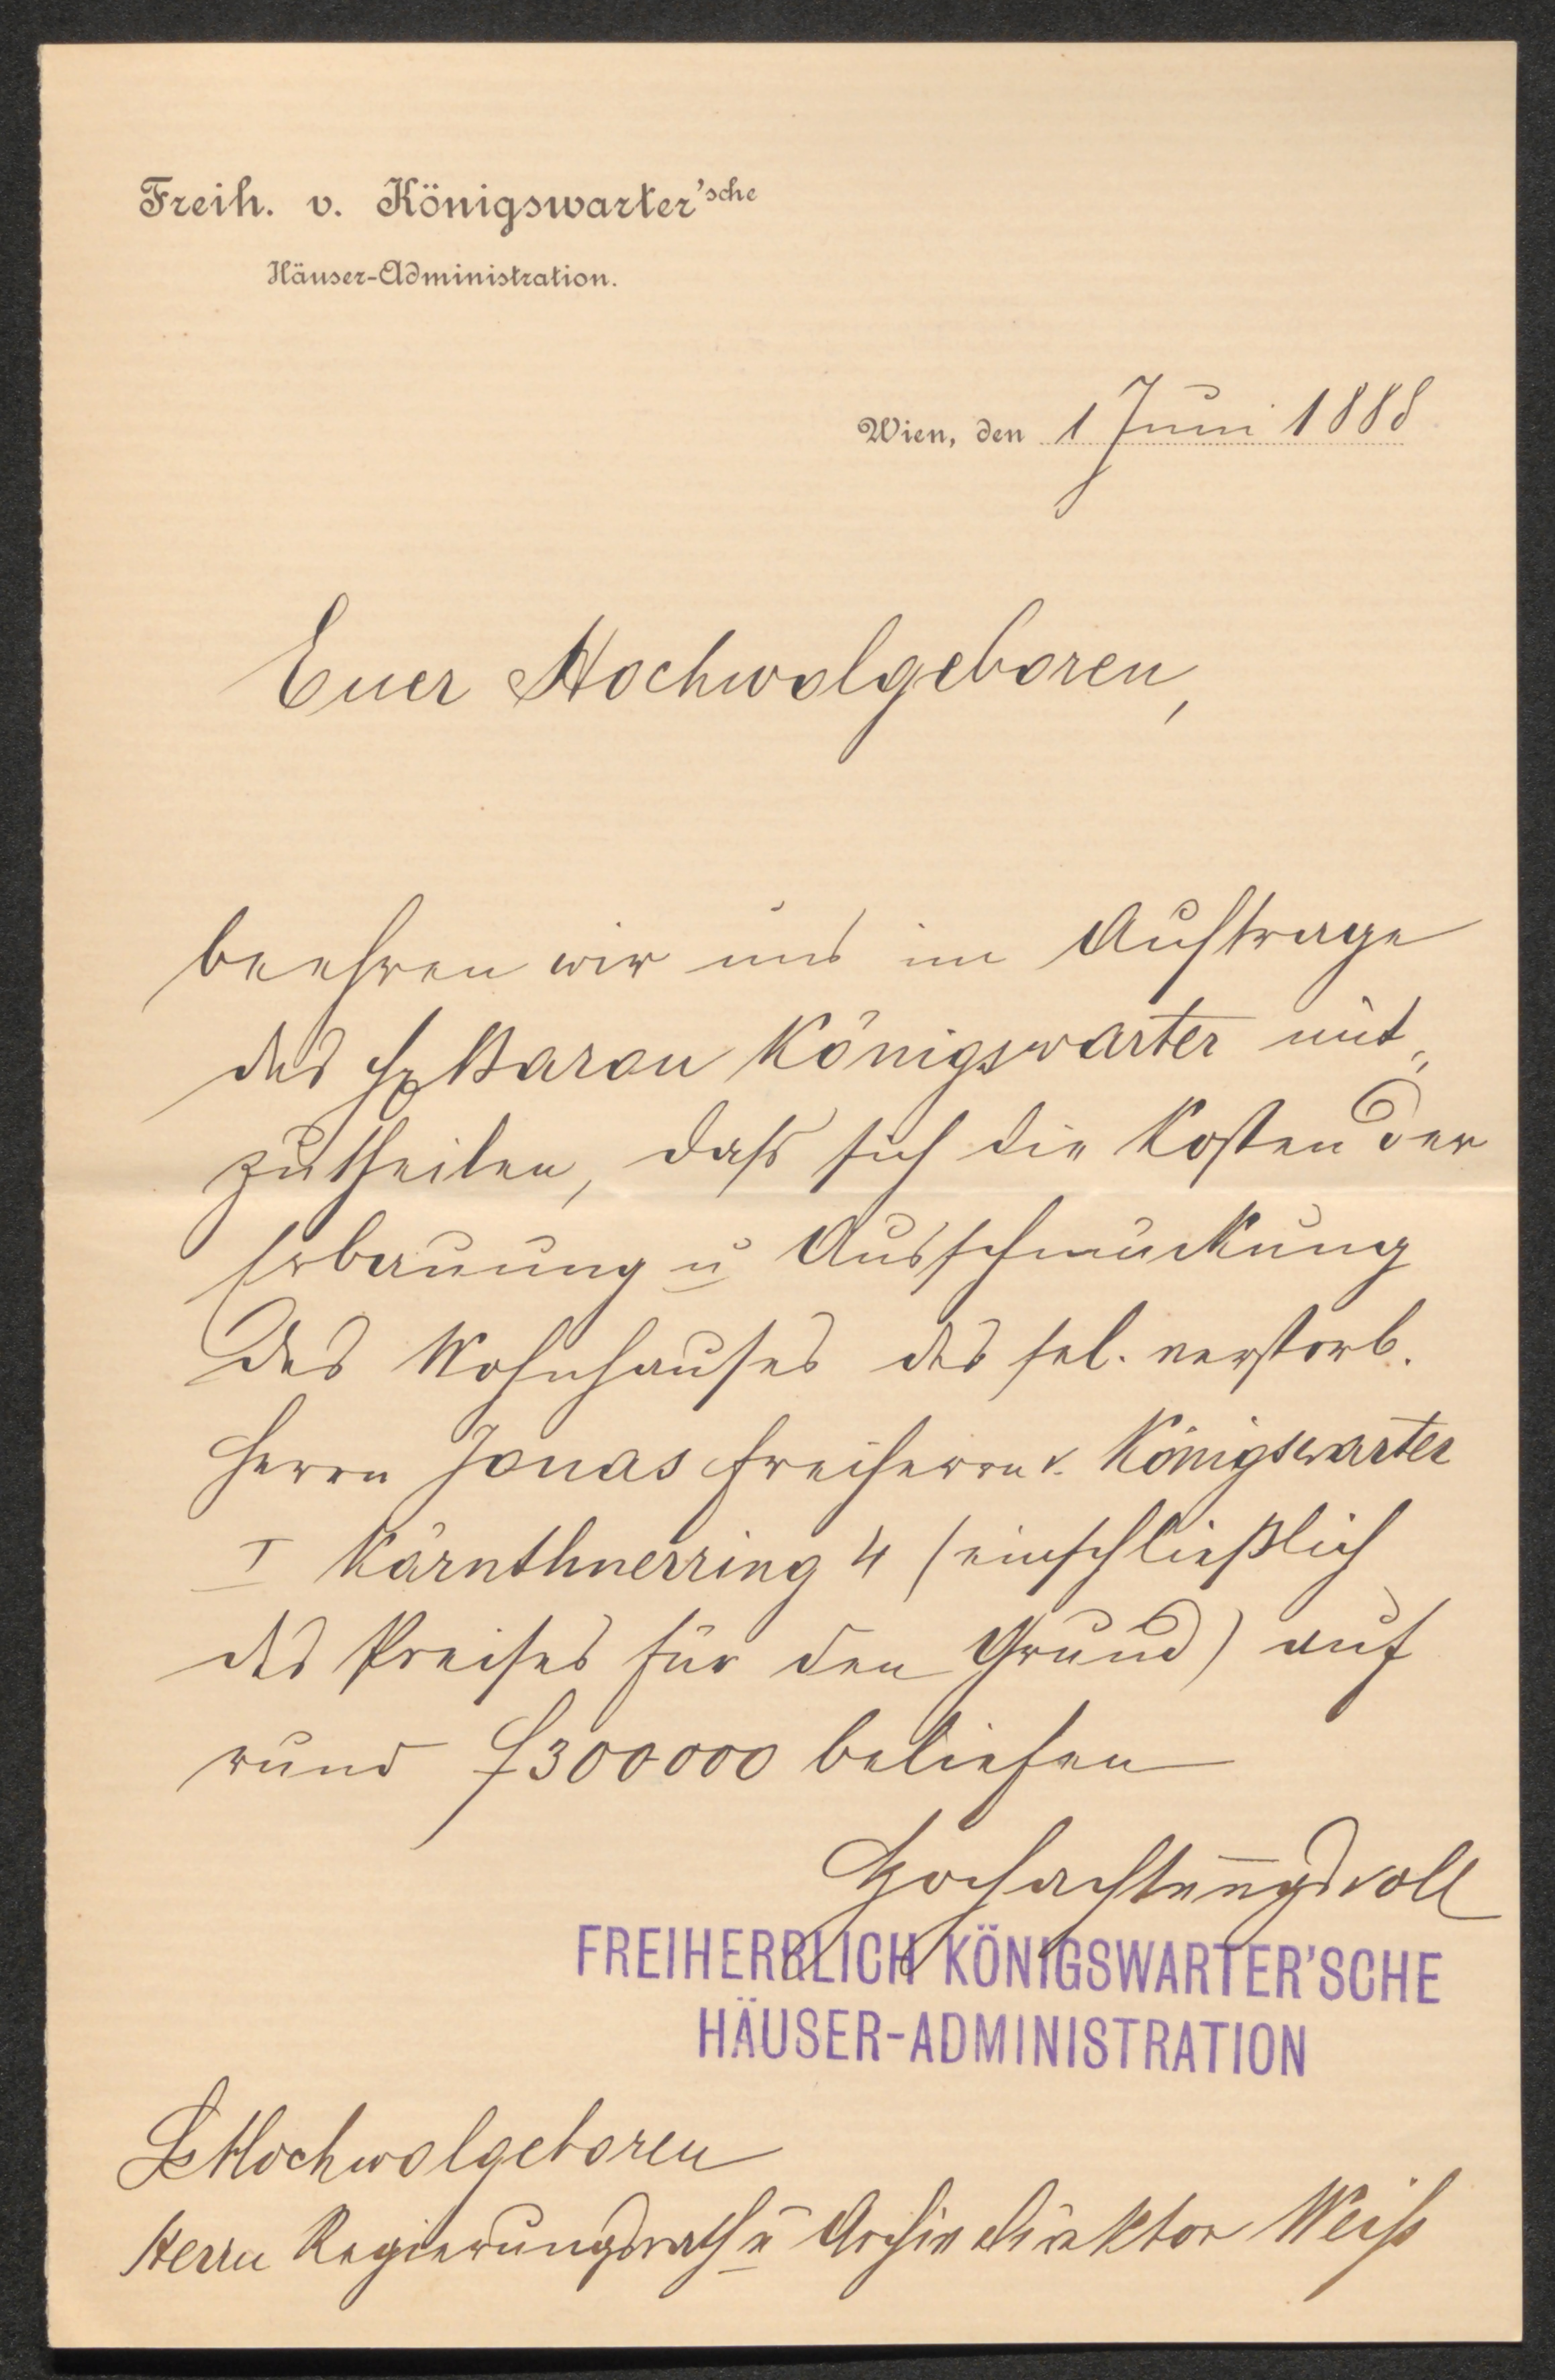 Freih. v. Königswarter'sche
Häuser-Administration.
Wien, den 1 Juni 1888
Euer Hochwolgeboren,
beehren wir uns im Auftrage
des H Baron Königswarter mit„
zutheilen, daß sich die Kosten der
Erbauung u Ausschmückung
des Wohnhauses des sel. verstorb.
Herrn Jonas Freiherrn v. Königswarter
I Kärnthnerring 4 (einschließlich
des Preises für den Grund) auf
rund f 300000 beliefen
Hochachtungsvoll
FREIHERRLICH KÖNIGSWARTER'SCHE
HÄUSER-ADMINISTRATION
Sr Hochwolgeboren
Herrn Regierungsrath u Archivdirektor Weiß